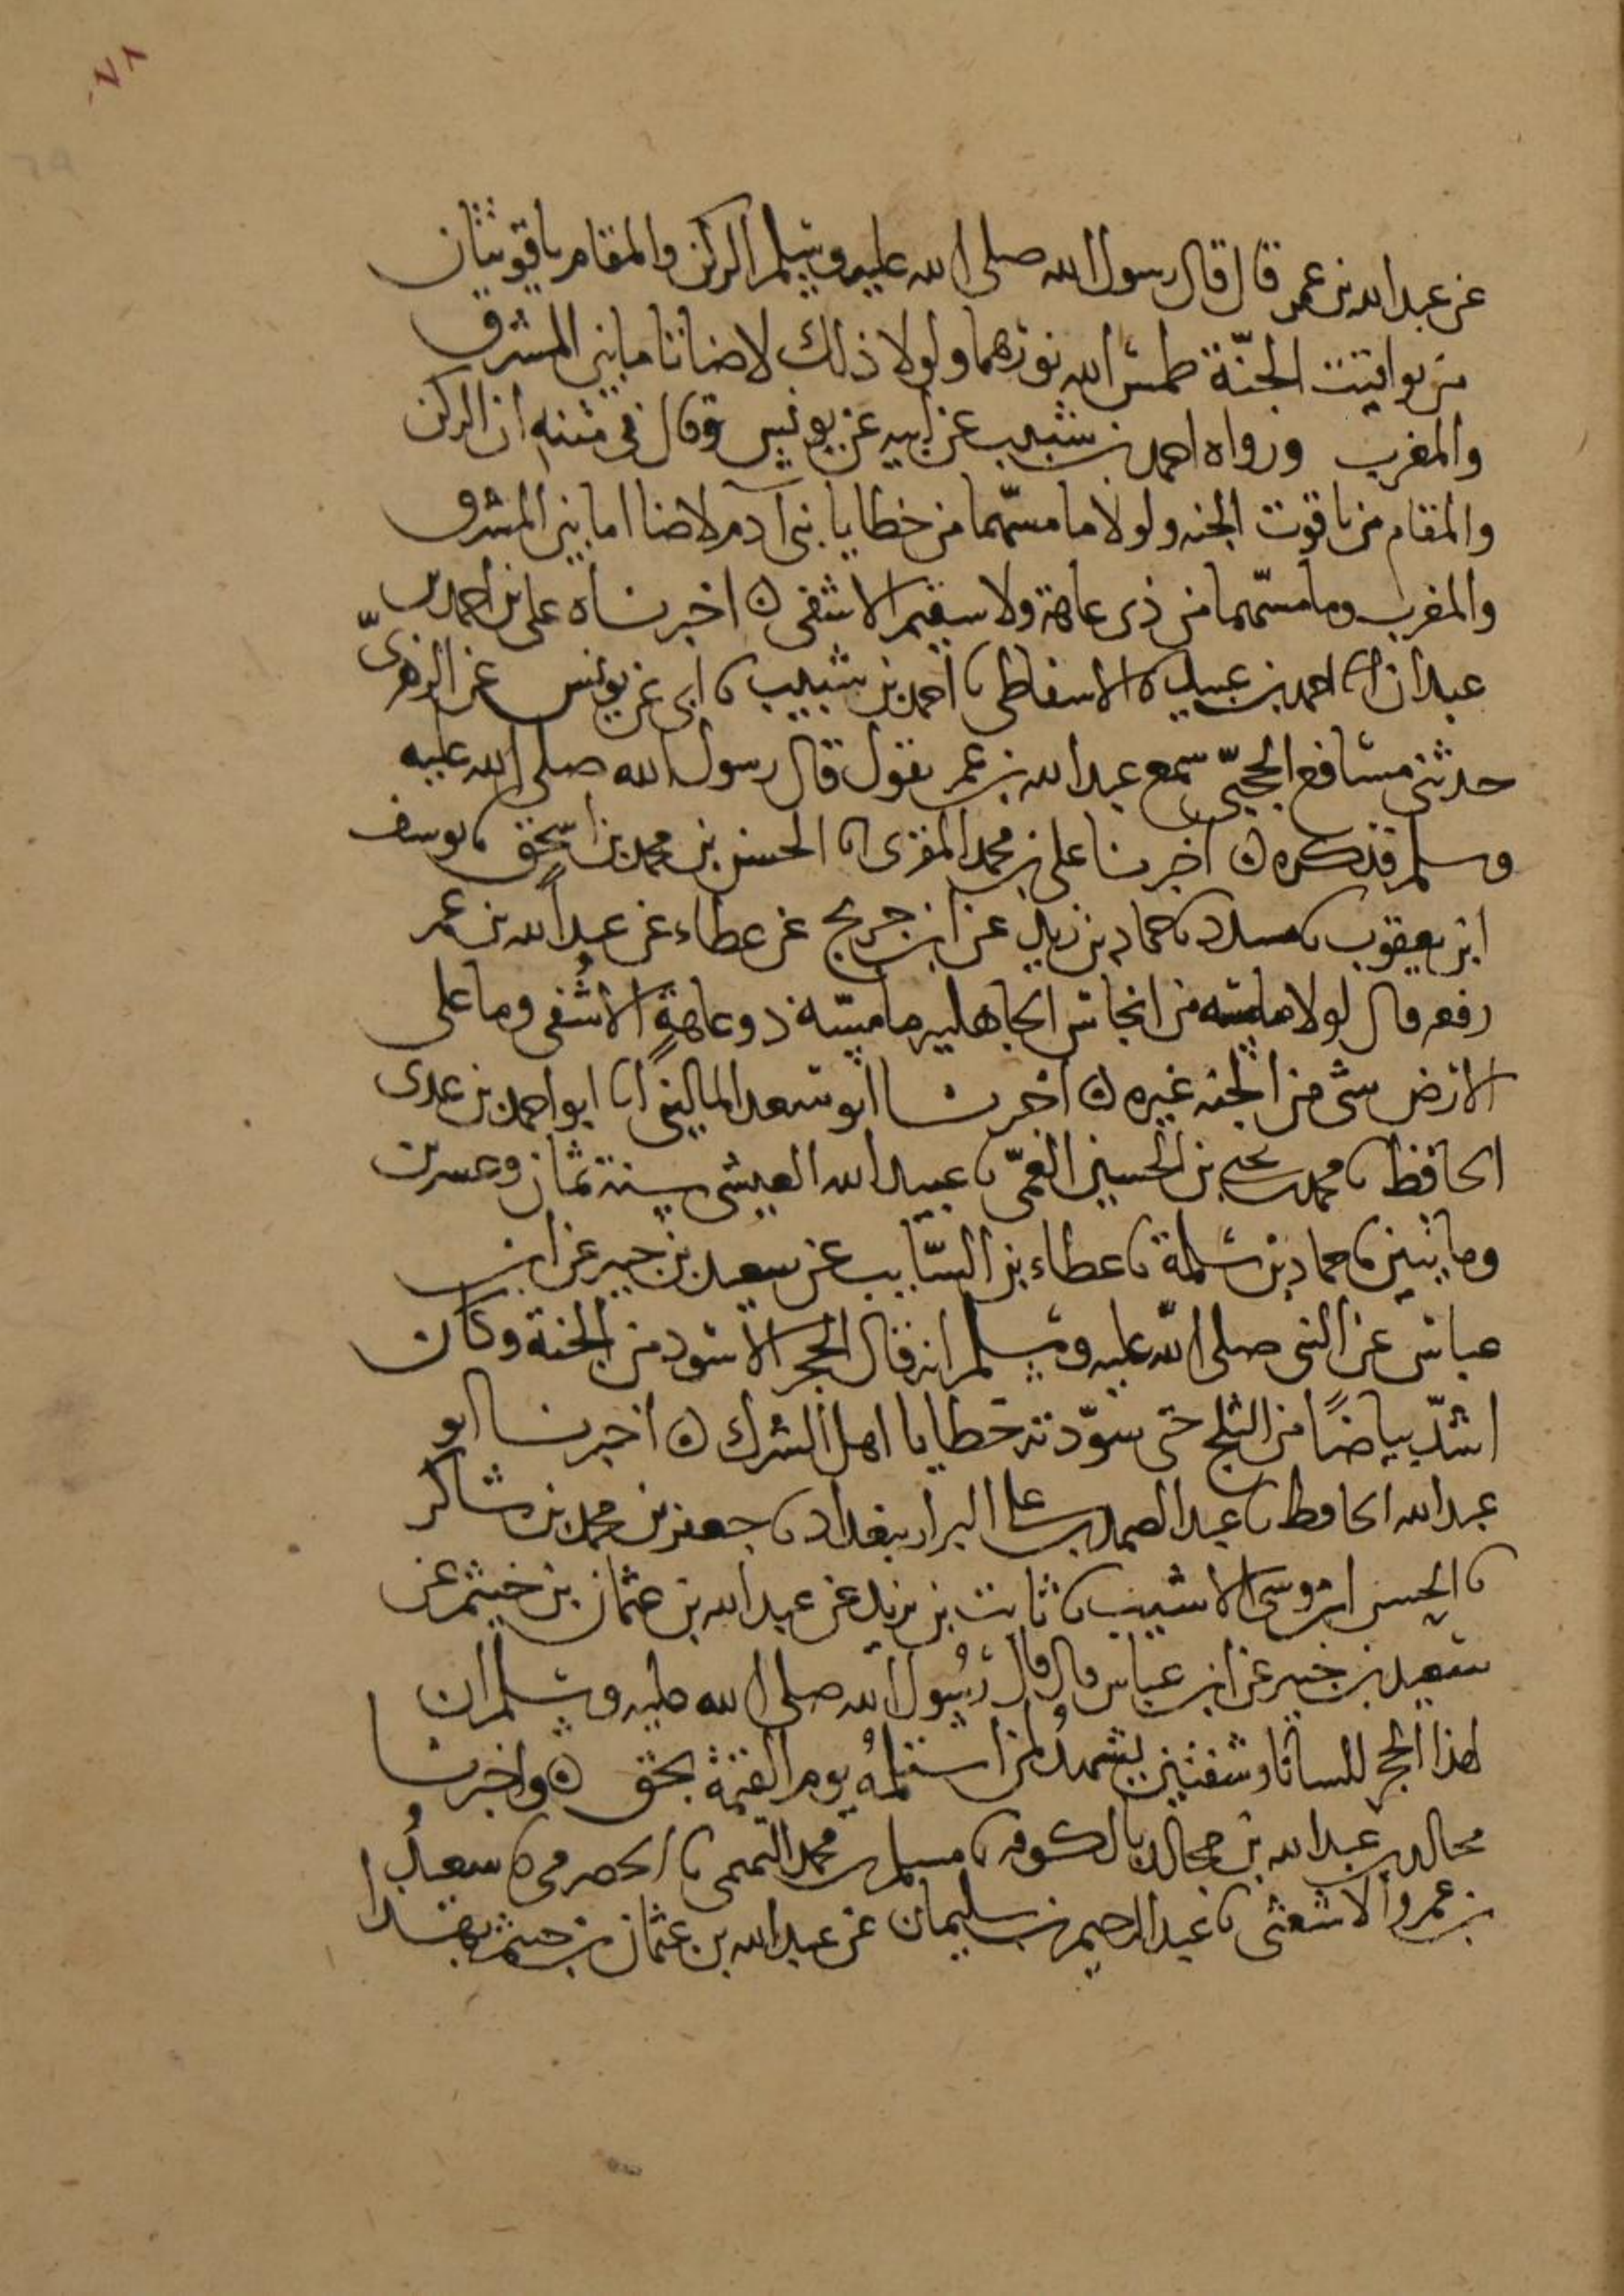 ٧٨
عن عبد الله بن عمر قال قال رسول الله صلى الله عليه وسلم الركن والمقام ياقوتتان
من يواقيت الجنّة طمس الله نورهما ولولا ذلك لاضاتا ما بين المشرق
والمغرب ورواه احمد بن شبيب عن ابيه عن يونس وقال في متنه ان الركن
والمقام من ياقوت الجنه ولولا ما مسّهما من خطايا بنى آدم لاضاا ما بين المشرق
والمغرب وما مسّهما من ذى عاهة ولا سقيم الا شفى ه اخبرناه على بن احمد بن
عبدان انا احمد بن عبيد نا الاسفاطى نا احمد بن شبيب نا ابى عن يونس عن الزهرىّ
حدثنى مسافع الحجبىّ سمع عبد الله بن عمر يقول قال رسول الله صلى الله عليه
وسلم فذكره ه اخبرنا على بن محمد المقرى انا الحسن بن محمد بن اسحق نا يوسف
ابن يعقوب نا مسدد نا حماد بن زيد عن ابن جريج عن عطاء عن عبد الله بن عمر
رفعه قال لولا ما مسه من انجاس الجاهليه ما مسّه ذو عاهةٍ الا شُفى وما على
الارض شى من الجنه غيره ه اخبرنا ابو سعد المالينى انا ابو احمد بن عدى
الحافظ نا محمد بن يحيى بن الحسين العمّى نا عبيد الله العيشى سنة ثمان وعشرين
ومايتين نا حماد بن سلمة نا عطاء بن السّايب عن سعيد بن جبير عن ابن
عباس عن النبى صلى اللّه عليه وسلم انه قال الحجر الاسود من الجنة وكان
اشدّ بياضًا من الثلج حتى سوّدته خطايا اهل الشرك ه اخبرنا ابو
عبد الله الحافظ نا عبد الصمد بن على البزاز ببغداد نا جعفر بن محمد بن شاكر
نا الحسن ابن موسى الاشيب نا ثابت بن يزيد عن عبد الله بن عثمان بن خيثم عن
سعيد بن جبير عن ابن عباس قال قال رسُول الله صلى الله عليه وسلم ان
لهذا الحجر للسانا وشفتين يشهدُ لمن استلمهُ يوم القيمة بحق ه واخبرنا
مجالد بن عبد الله بن مجالد بالكوفه نا مسلم بن محمد التميمى نا الحضرمى نا سعيدُ
بن عمرو الاشعثى نا عبد الرحيم بن سليمان عن عبد الله بن عثمان بن خيثم بهذا